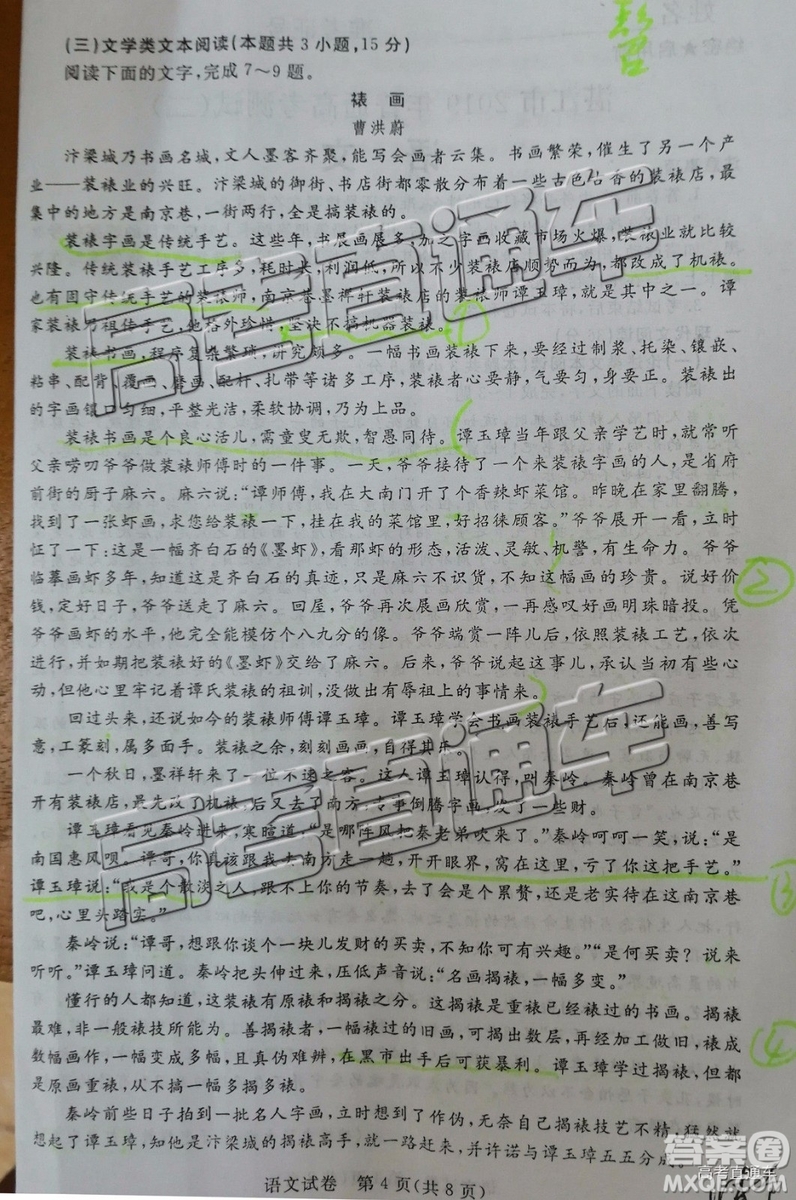 (三)文学类文本阅读(本题共3小题,15分)
阅读下面的文字,完成7～9题。
裱 画
曹洪蔚
汴梁城乃书画名城,文人墨客齐聚,能写会画者云集。书画繁荣,催生了另一个产
业——装裱业的兴旺。汴梁城的御街、书店街都零散分布着一些古色古香的装裱店,最
集中的地方是南京巷,一街两行,全是搞装裱的。
装裱字画是传统手艺。这些年,书展画展多,加之字画收藏市场火爆,装裱业就比较
兴隆。传统装裱手艺工序多,耗时长,利润低,所以不少装裱店顺势而为,都改成了机裱。
也有固守传统手艺的装裱师,南京巷墨祥轩装裱店的装裱师谭玉璋,就是其中之一。谭
家装裱乃祖传手艺,他格外珍惜,坚决不搞机器装裱。
装裱书画,程序复杂繁琐,讲究颇多。一幅书画装裱下来,要经过制浆、托染、镶嵌、
粘串、配背、覆画、磨画、配杆、扎带等诸多工序,装裱者心要静,气要匀,身要正。装裱出
的字画镶 匀细,平整光洁,柔软协调,乃为上品。
装裱书画是个良心活儿,需童叟无欺,智愚同待。谭玉璋当年跟父亲学艺时,就常听
父亲唠叨爷爷做装裱师傅时的一件事。一天,爷爷接待了一个来装裱字画的人,是省府
前街的厨子麻六。麻六说:“谭师傅,我在大南门开了个香辣虾菜馆。昨晚在家里翻腾,
找到了一张虾画,求您给装裱一下,挂在我的菜馆里,好招徕顾客。”爷爷展开一看,立时
怔了一下:这是一幅齐白石的《墨虾》,看那虾的形态,活泼、灵敏、机警,有生命力。爷爷
临摹画虾多年,知道这是齐白石的真迹,只是麻六不识货,不知这幅画的珍贵。说好价
钱,定好日子,爷爷送走了麻六。回屋,爷爷再次展画欣赏,一再感叹好画明珠暗投。凭
爷爷画虾的水平,他完全能模仿个八九分的像。爷爷端赏一阵儿后,依照装裱工艺,依次
进行,并如期把装裱好的《墨虾》交给了麻六。后来,爷爷说起这事儿,承认当初有些心
动,但他心里牢记着谭氏装裱的祖训,没做出有辱祖上的事情来。
回过头来,还说如今的装裱师傅谭玉璋。谭玉璋学会书画装裱手艺后,还能画,善写
意,工篆刻,属多面手。装裱之余,刻刻画画,自得其乐。
一个秋日,墨祥轩来了一位不速之客。这人谭玉璋认得,叫秦岭。秦岭曾在南京巷
开有装裱店,最先改了机裱,后又去了南方,专事倒腾字画,发了一些财。
谭玉璋看见秦岭进来,寒暄道:“是哪阵风把秦老弟吹来了。”秦岭呵呵一笑,说:“是
南国惠风呗。谭哥,你真该跟我去南方走一趟,开开眼界,窝在这里,亏了你这把手艺。”
谭玉璋说:“我是个散淡之人,跟不上你的节奏,去了会是个累赘,还是老实待在这南京巷
吧,心里头踏实。”
秦岭说:“谭哥,想跟你谈个一块儿发财的买卖,不知你可有兴趣。”“是何买卖?说来
听听。”谭玉璋问道。秦岭把头伸过来,压低声音说:“名画揭裱,一幅多变。”
懂行的人都知道,这装裱有原裱和揭裱之分。这揭裱是重裱已经裱过的书画。揭裱
最难,非一般裱技所能为。善揭裱者,一幅裱过的旧画,可揭出数层,再经加工做旧,裱成
数幅画作,一幅变成多幅,且真伪难辨,在黑市出手后可获暴利。谭玉璋学过揭裱,但都
是原画重裱,从不搞一幅多揭多裱。
秦岭前些日子拍到一批名人字画,立时想到了作伪,无奈自己揭裱技艺不精,猛然就
想起了谭玉璋,知他是汴梁城的揭裱高手,就一路赶来,并许诺与谭玉璋五五分成。
语文试卷 第4页(共8页)
①
②
③
④
高考直通车
高考直通车
答案圈
高考直通车
MXQE.COM